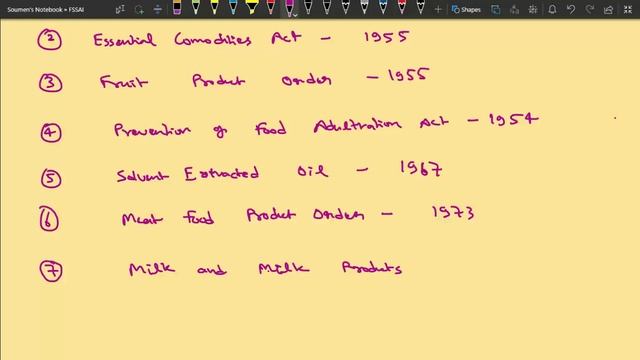 Soumen's Notebook » FSSAI
Shapes
② Essential Comodities Act - 1955
③ Fruit Product Order - 1955
④ Prevention of Food Adultration Act - 1954
⑤ Solvent Extracted Oil - 1967
⑥ Meat Food Product Order - 1973
⑦ Milk and Milk Products